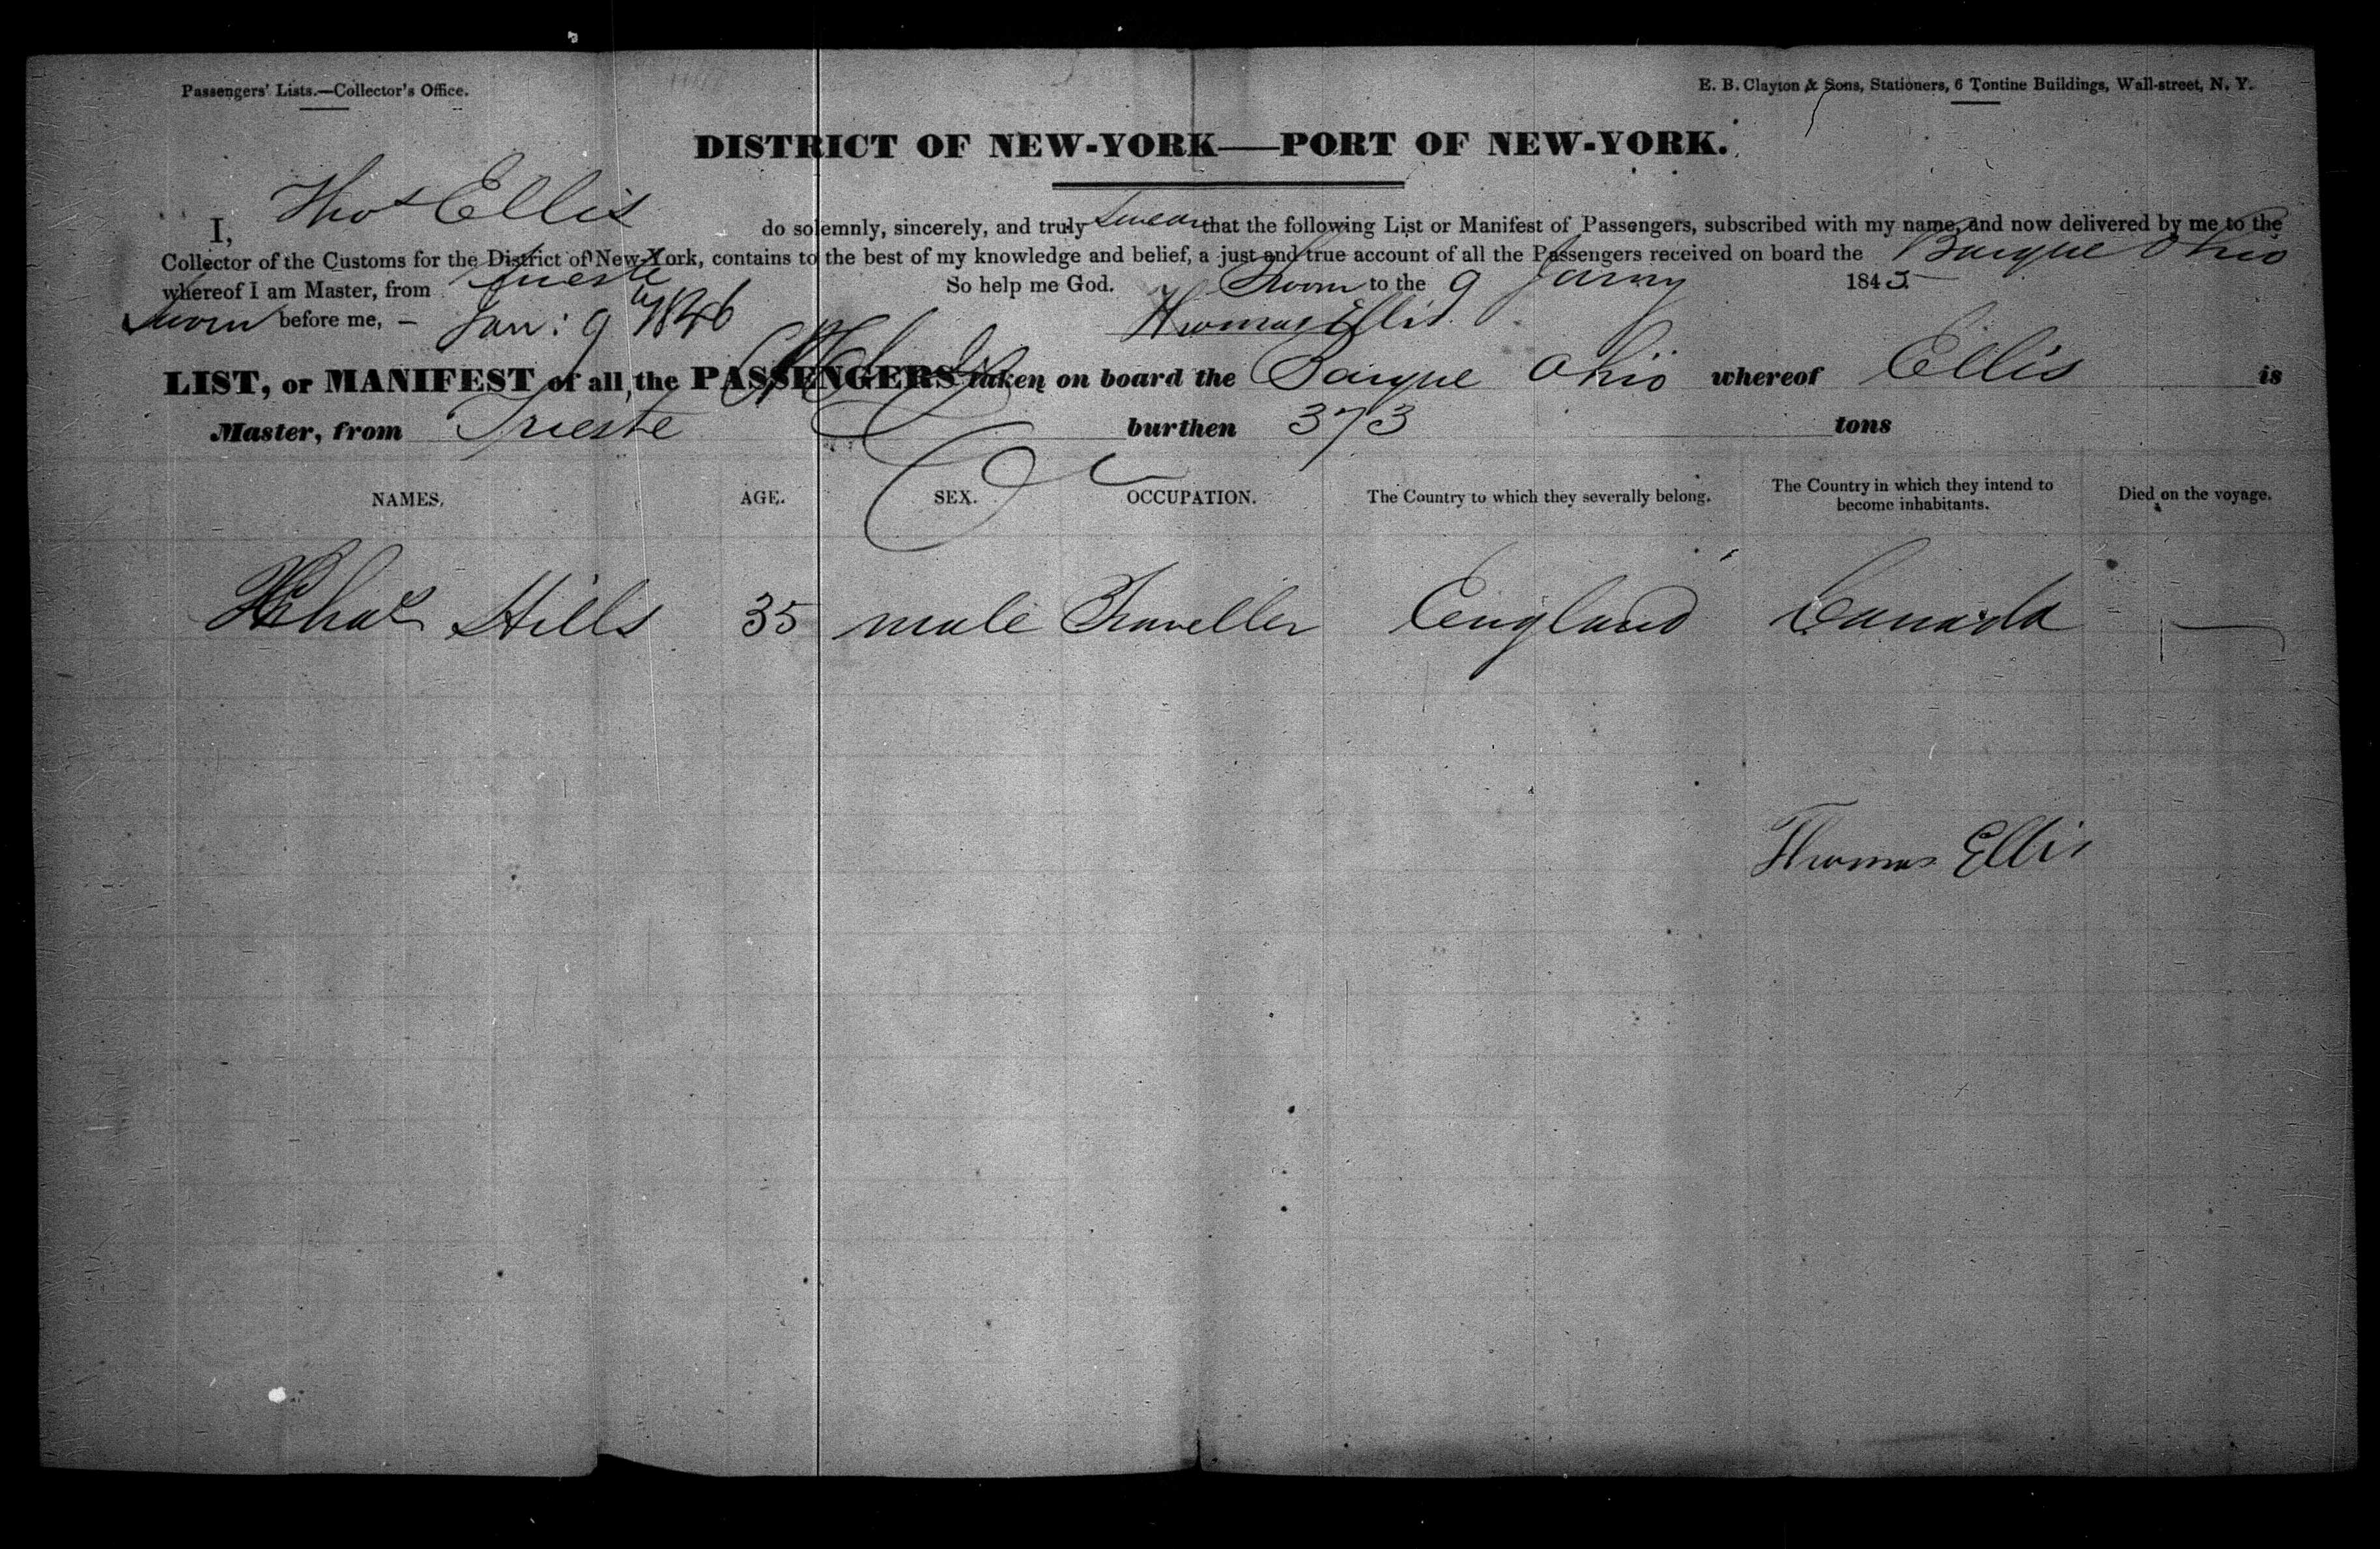 Passengers' Lists.—Collector's Office.
E. B. Clayton & Sons, Stationers, 6 Tontine Buildings, Wall-street, N. Y.
DISTRICT OF NEW-YORK—PORT OF NEW-YORK.
I, Thos Ellis do solemnly, sincerely, and truly swear that the following List or Manifest of Passengers, subscribed with my name, and now delivered by me to the
Collector of the Customs for the District of New-York, contains to the best of my knowledge and belief, a just and true account of all the Passengers received on board the Barque Ohio
whereof I am Master, from Trieste So help me God. Sworn to the 9 Janry 1845
Sworn before me, — Jan: 9th 1846 Thomas Ellis.
LIST, or MANIFEST of all the PASSENGERS taken on board the Barque Ohio whereof Ellis is
Master, from Trieste burthen 373 tons
NAMES. AGE. SEX. OCCUPATION. The Country to which they severally belong. The Country in which they intend to become inhabitants. Died on the voyage.
Hills 35 male Traveller England Canada —
Thomas Ellis